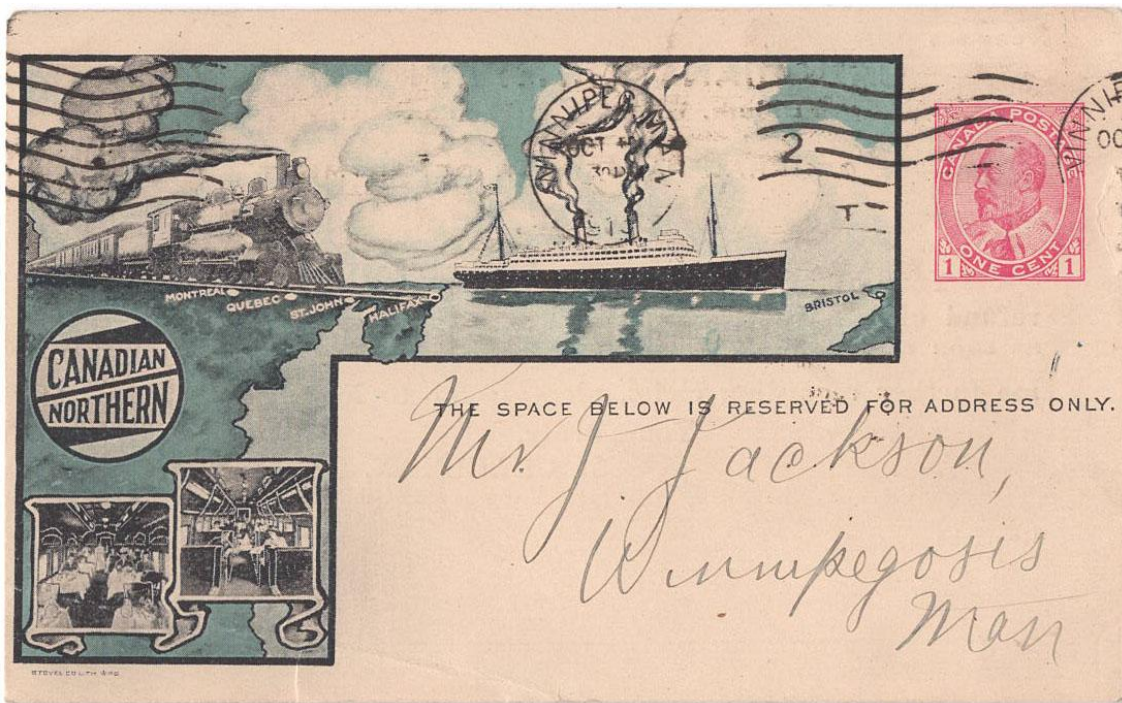 WINNIPEG MAN
OCT
2
T
CANADA POSTAGE
ONE CENT
1 1
MONTREAL
QUEBEC
ST. JOHN
HALIFAX
BRISTOL
CANADIAN
NORTHERN
THE SPACE BELOW IS RESERVED FOR ADDRESS ONLY.
Mr. J Jackson,
Winnipegosis
Man
STOVEL CO LITH WPG.